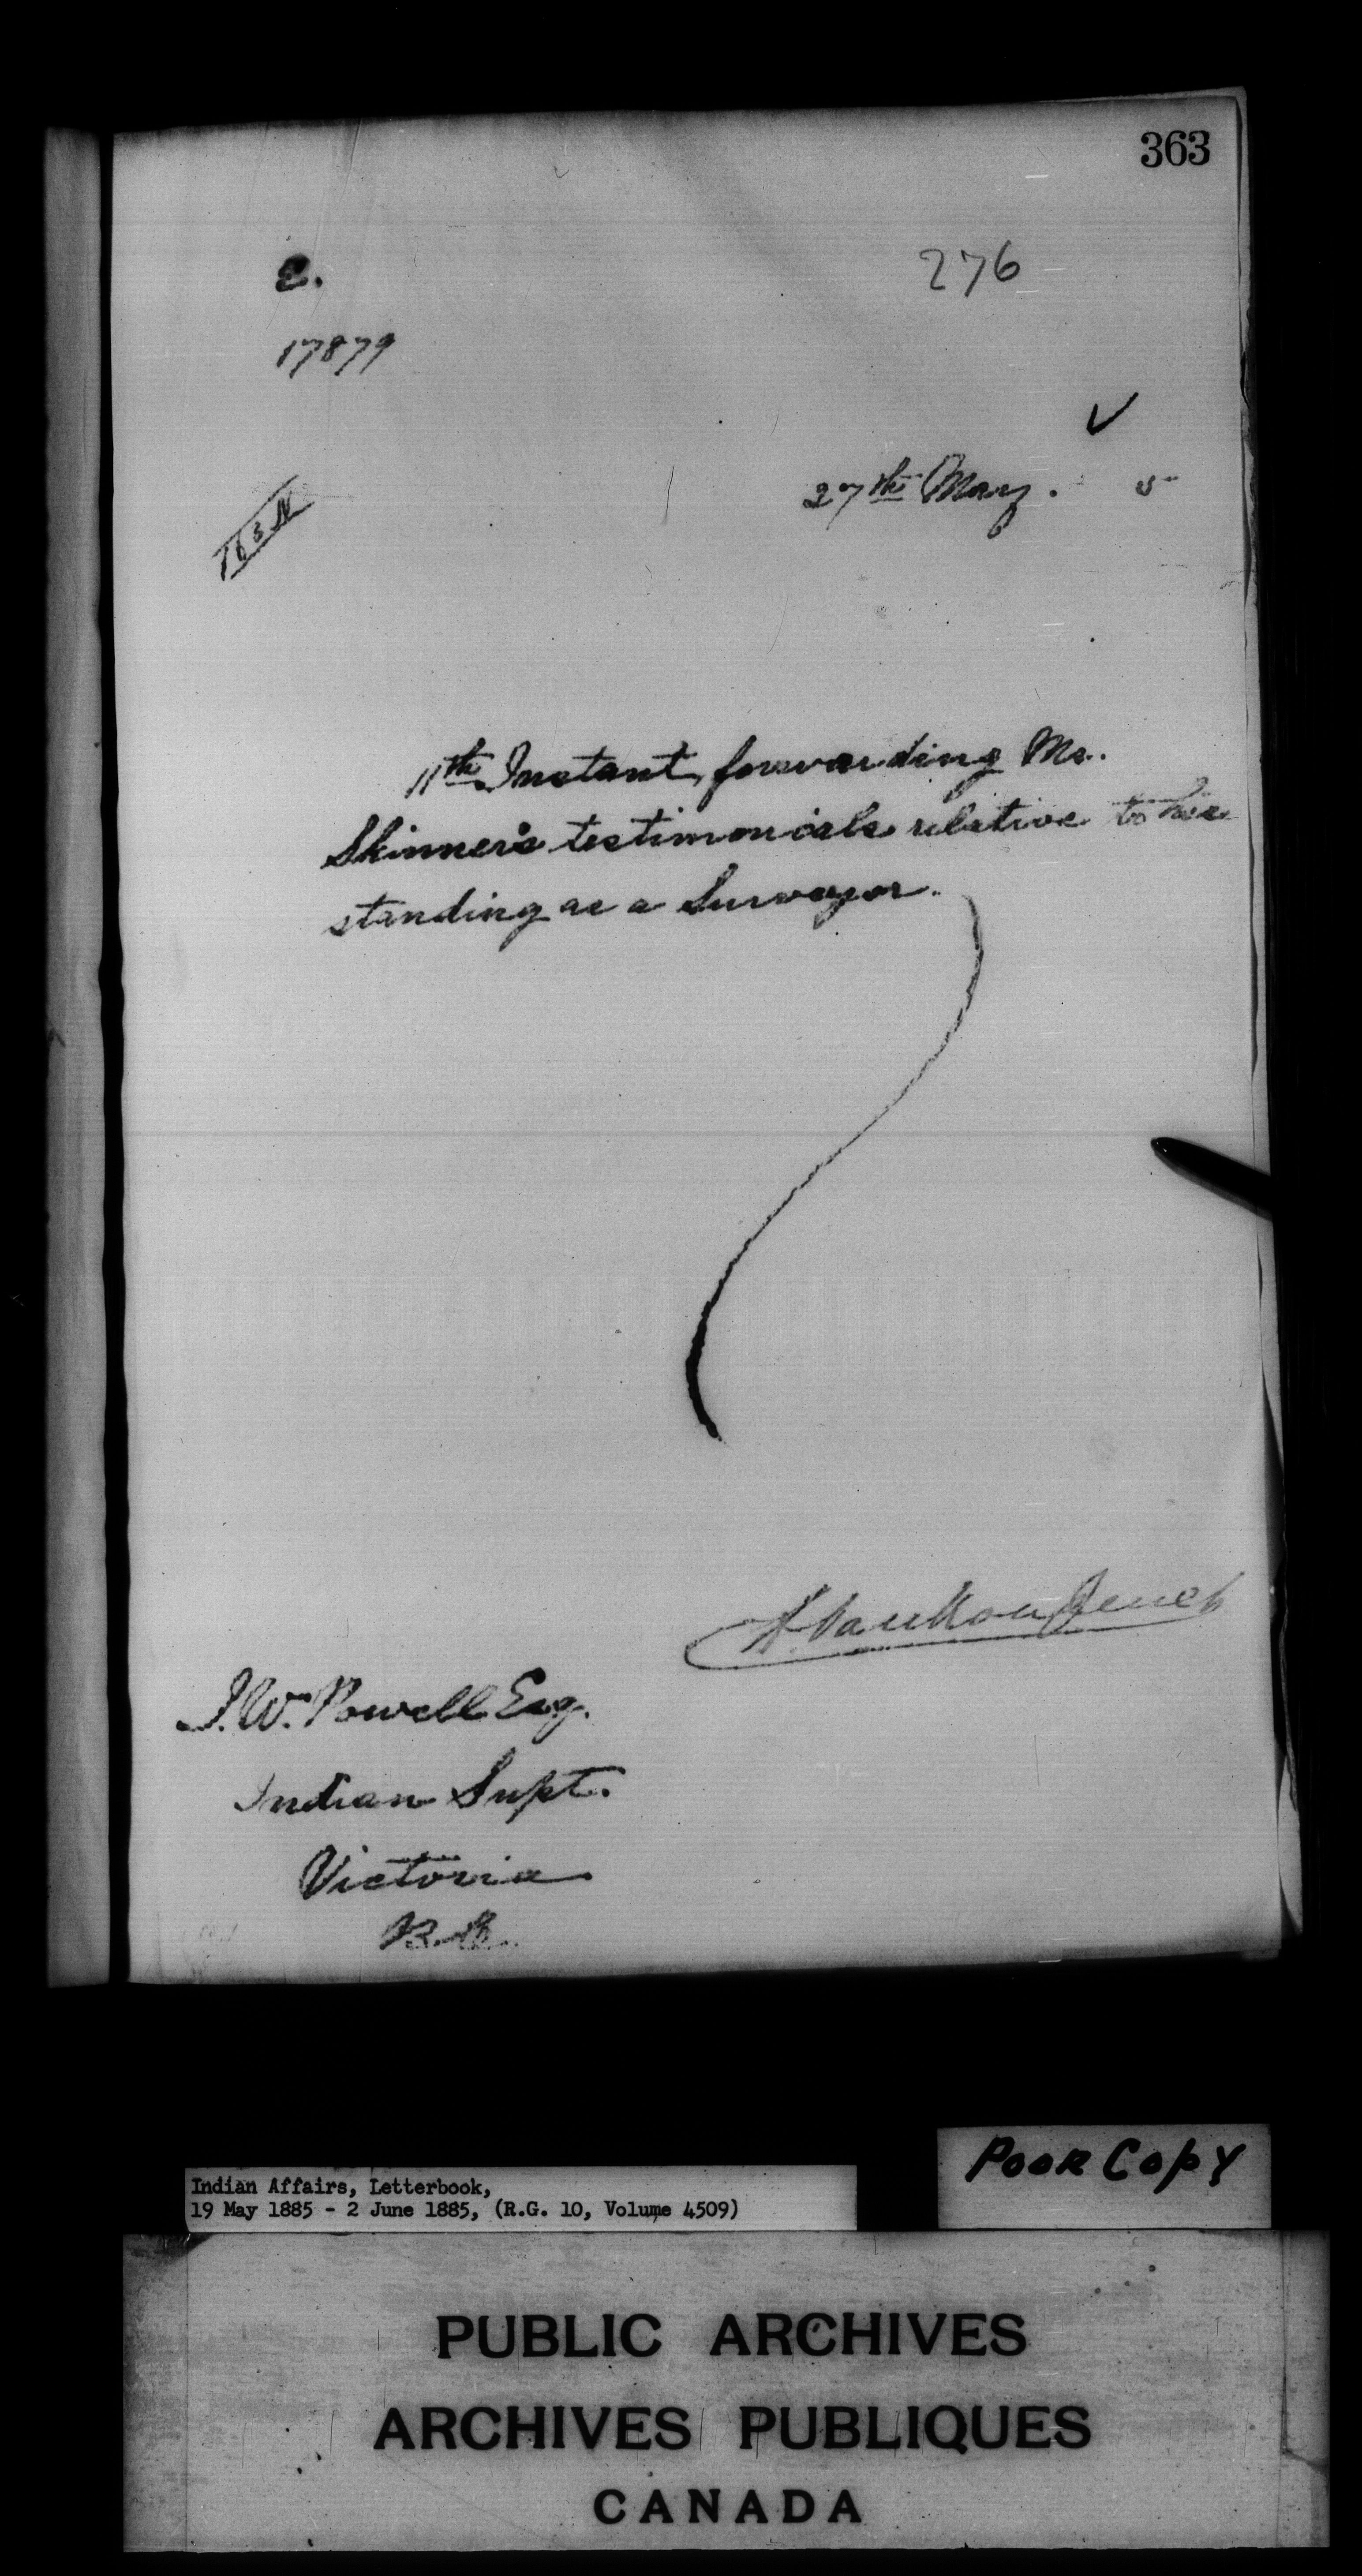 363
276
E.
17879
27th May. 5
11th Instant, forwarding Mr.
Skinner's testimonials relative to his
standing as a Surveyor.
L. VanKoughnet
I. W. Powell Esq.
Indian Supt.
Victoria
B.C.
Poor Copy
Indian Affairs, Letterbook,
19 May 1885 - 2 June 1885, (R.G. 10, Volume 4509)
PUBLIC ARCHIVES
ARCHIVES PUBLIQUES
CANADA